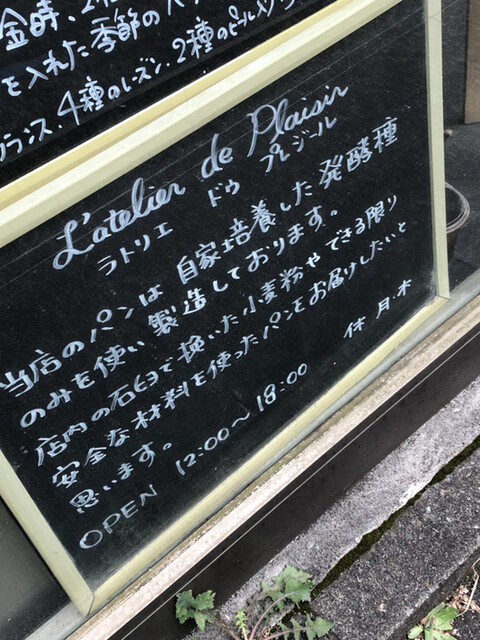 金時、2種
を入れた季節の
フランス、4種のレーズン、2種のピール入り
L'atelier de Plaisir
ラトリエ ドゥ プレジール
当店のパンは 自家培養した発酵種
のみを使い製造しております。
店内の石臼で挽いた小麦粉やできる限り
安全な材料を使ったパンをお届けしたいと
思います。
OPEN 12:00〜18:00 休 月.木